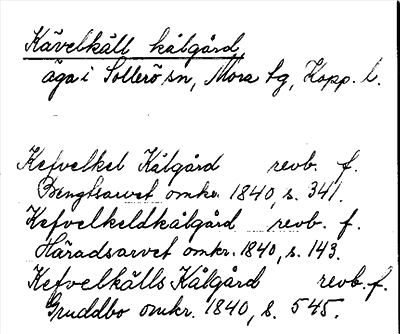 Kävelkäll kålgård
äga i Sollerö sn, Mora tg, Kopp. l.
Kefvelkel Kålgård revb. f.
Bengtsarvet omkr. 1840, s. 341.
Kefvelkeldkålgård revb. f.
Häradsarvet omkr. 1840, s. 143.
Kefvelkälls Kålgård revb. f.
Gruddbo omkr. 1840, s. 545.